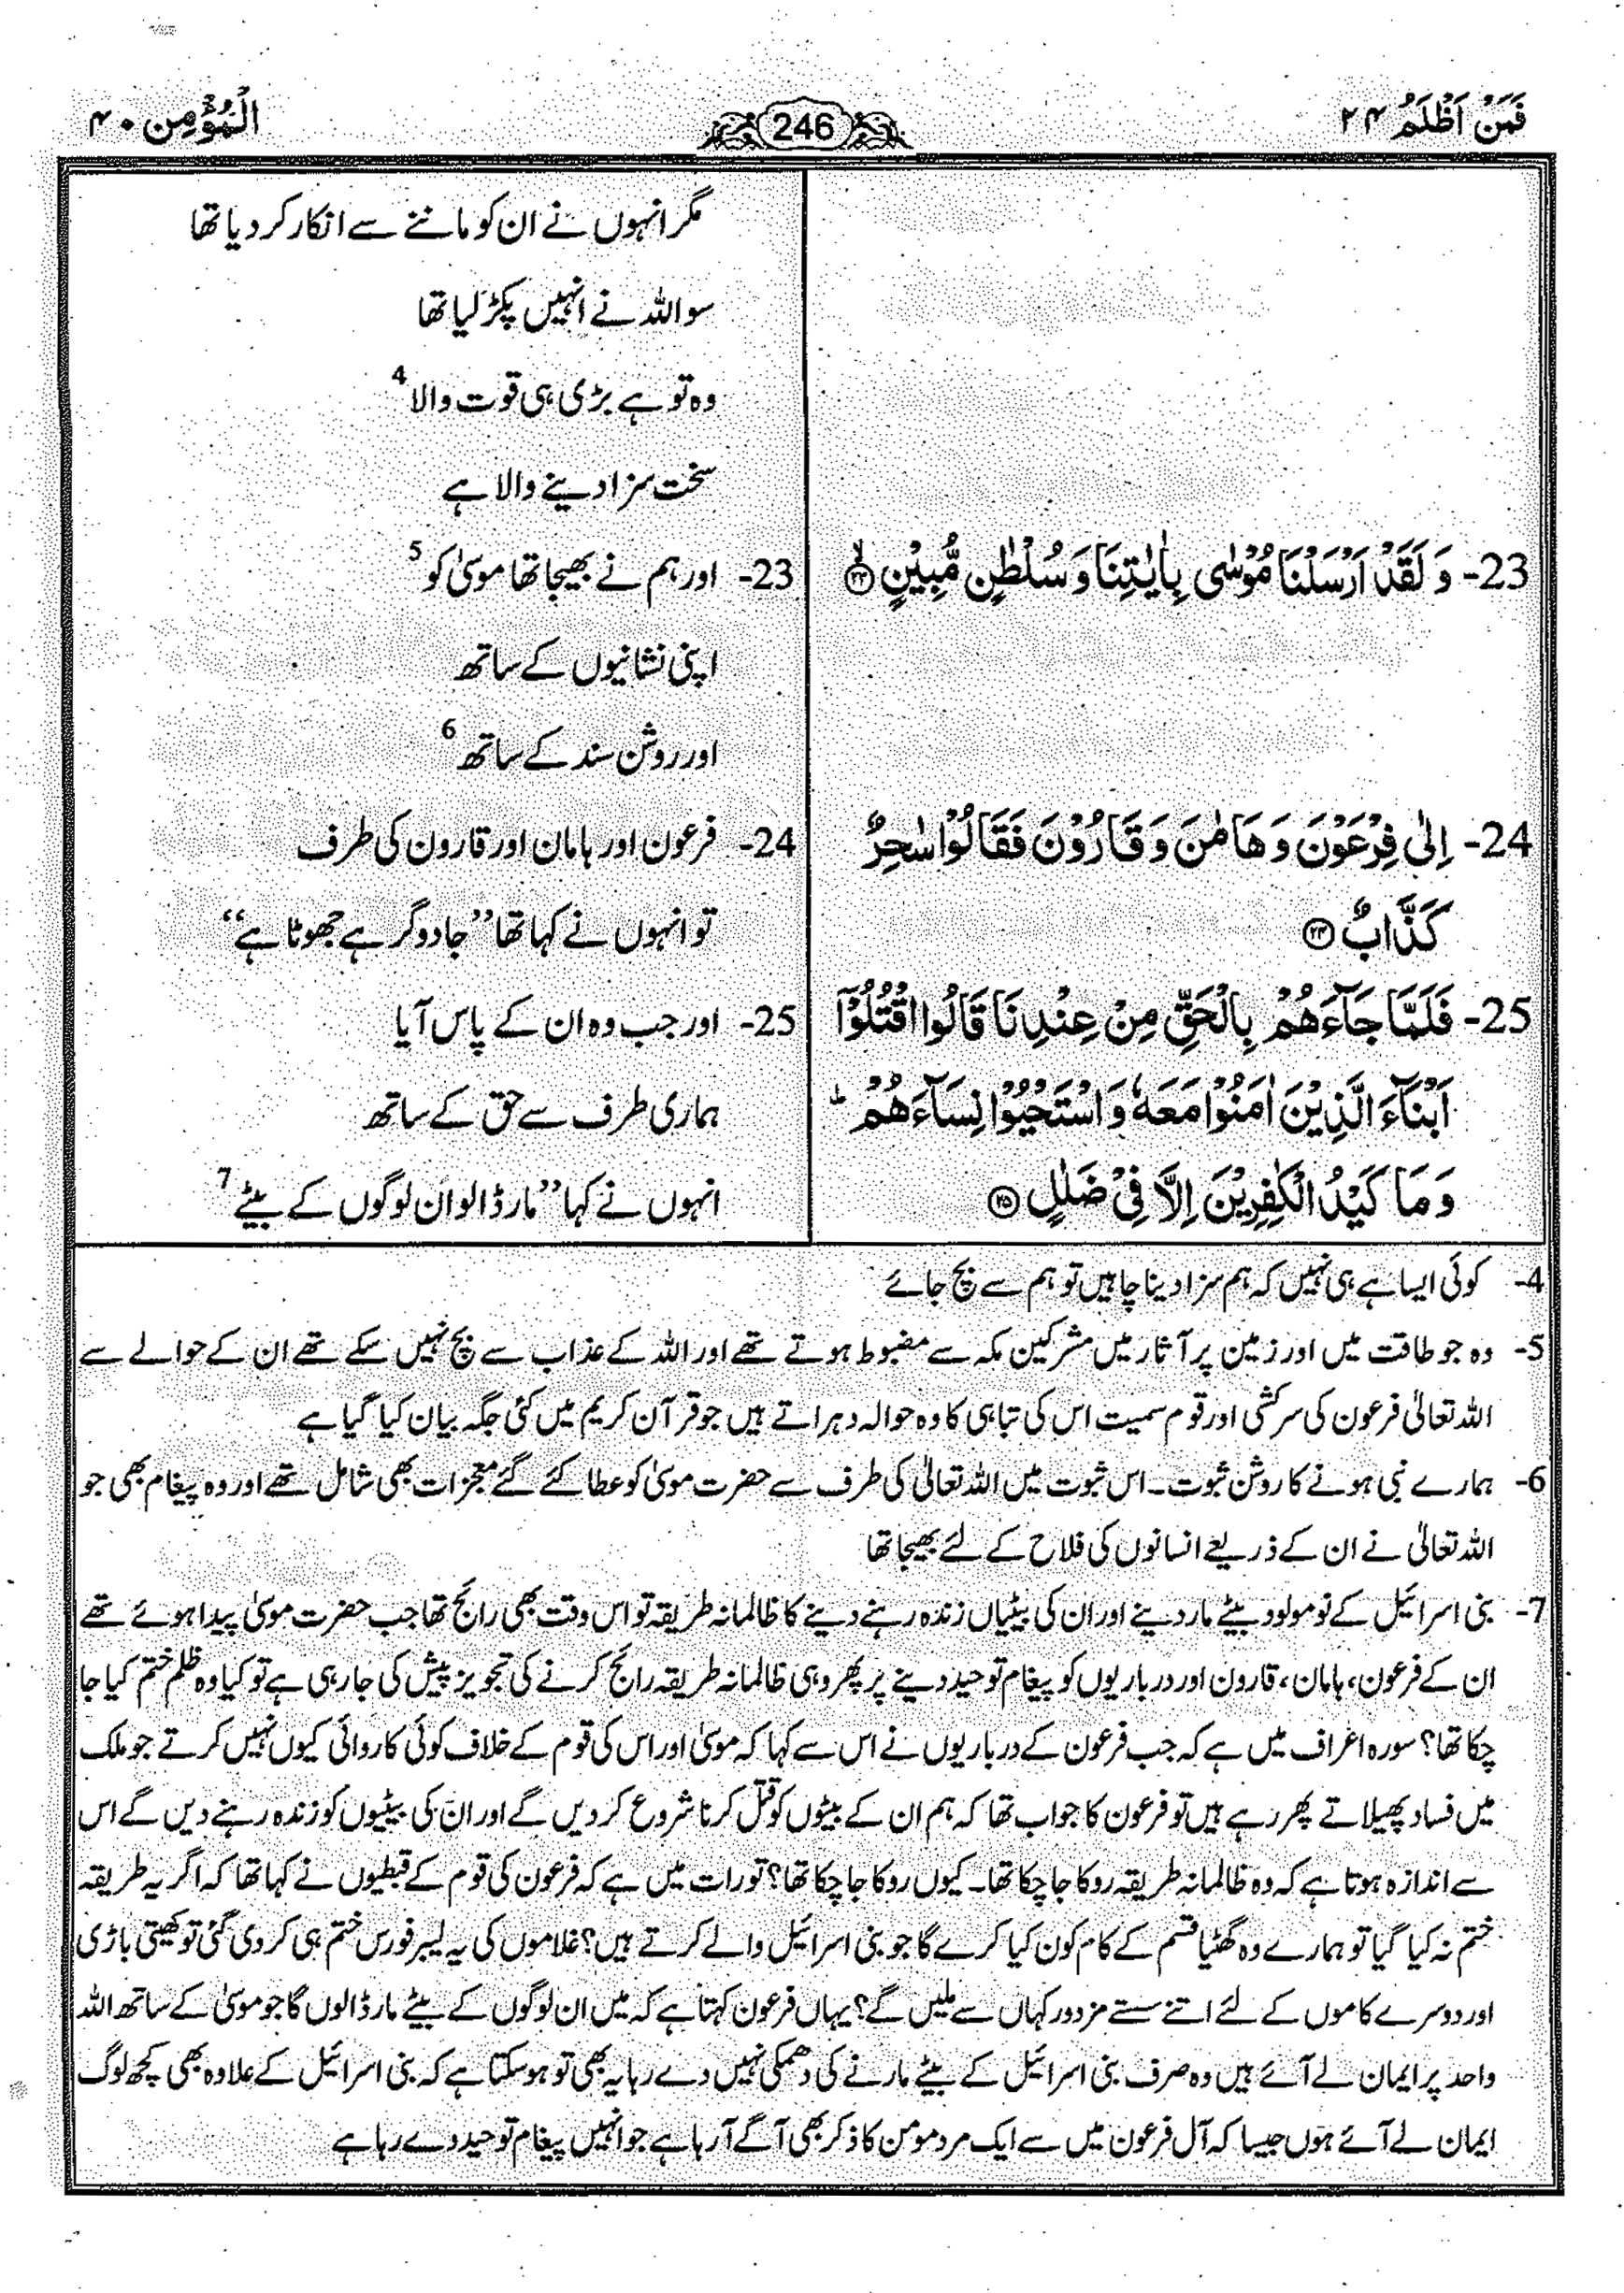 فَمَنْ اَظْلَمُ ۲۴
246
الْمُؤْمِن ۴۰
مگر انہوں نے ان کو ماننے سے انکار کر دیا تھا
سو اللہ نے انہیں پکڑ لیا تھا
وہ تو ہے بڑی ہی قوت والا 4
سخت سزا دینے والا ہے
23- وَ لَقَدْ اَرْسَلْنَا مُوْسٰی بِاٰیٰتِنَا وَ سُلْطٰنٍ مُّبِیْنٍ ﴿۲۳﴾ۙ
23- اور ہم نے بھیجا تھا موسیٰ کو 5
اپنی نشانیوں کے ساتھ
اور روشن سند کے ساتھ 6
24- اِلٰی فِرْعَوْنَ وَ هَامٰنَ وَ قَارُوْنَ فَقَالُوْا سٰحِرٌ
كَذَّابٌ ﴿۲۴﴾
24- فرعون اور ہامان اور قارون کی طرف
تو انہوں نے کہا تھا ’’جادوگر ہے جھوٹا ہے‘‘
25- فَلَمَّا جَآءَهُمْ بِالْحَقِّ مِنْ عِنْدِنَا قَالُوا اقْتُلُوْۤا
اَبْنَآءَ الَّذِیْنَ اٰمَنُوْا مَعَهٗ وَ اسْتَحْیُوْا نِسَآءَهُمْ ؕ
وَ مَا كَیْدُ الْكٰفِرِیْنَ اِلَّا فِیْ ضَلٰلٍ ﴿۲۵﴾
25- اور جب وہ ان کے پاس آیا
ہماری طرف سے حق کے ساتھ
انہوں نے کہا ’’مار ڈالو ان لوگوں کے بیٹے 7
4- کوئی ایسا ہے ہی نہیں کہ ہم سزا دینا چاہیں تو ہم سے بچ جائے
5- وہ جو طاقت میں اور زمین پر آثار میں مشرکین مکہ سے مضبوط ہوتے تھے اور اللہ کے عذاب سے بچ نہیں سکے تھے ان کے حوالے سے
اللہ تعالیٰ فرعون کی سرکشی اور قوم سمیت اس کی تباہی کا وہ حوالہ دہراتے ہیں جو قرآن کریم میں کئی جگہ بیان کیا گیا ہے
6- ہمارے نبی ہونے کا روشن ثبوت۔ اس ثبوت میں اللہ تعالیٰ کی طرف سے حضرت موسیٰ کو عطا کئے گئے معجزات بھی شامل تھے اور وہ پیغام بھی جو
اللہ تعالیٰ نے ان کے ذریعے انسانوں کی فلاح کے لئے بھیجا تھا
7- بنی اسرائیل کے نومولود بیٹے مار دینے اور ان کی بیٹیاں زندہ رہنے دینے کا ظالمانہ طریقہ تو اس وقت بھی رائج تھا جب حضرت موسیٰ پیدا ہوئے تھے
ان کے فرعون، ہامان، قارون اور درباریوں کو پیغام توحید دینے پر پھر وہی ظالمانہ طریقہ رائج کرنے کی تجویز پیش کی جا رہی ہے تو کیا وہ ظلم ختم کیا جا
چکا تھا؟ سورہ اعراف میں ہے کہ جب فرعون کے درباریوں نے اس سے کہا کہ موسیٰ اور اس کی قوم کے خلاف کوئی کاروائی کیوں نہیں کرتے جو ملک
میں فساد پھیلاتے پھر رہے ہیں تو فرعون کا جواب تھا کہ ہم ان کے بیٹوں کو قتل کرنا شروع کر دیں گے اور ان کی بیٹیوں کو زندہ رہنے دیں گے اس
سے اندازہ ہوتا ہے کہ وہ ظالمانہ طریقہ روکا جا چکا تھا۔ کیوں روکا جا چکا تھا؟ تورات میں ہے کہ فرعون کی قوم کے قبطیوں نے کہا تھا کہ اگر یہ طریقہ
ختم نہ کیا گیا تو ہمارے وہ گھٹیا قسم کے کام کون کیا کرے گا جو بنی اسرائیل والے کرتے ہیں؟ غلاموں کی یہ لیبر فورس ختم ہی کر دی گئی تو کھیتی باڑی
اور دوسرے کاموں کے لئے اتنے سستے مزدور کہاں سے ملیں گے؟ یہاں فرعون کہتا ہے کہ میں ان لوگوں کے بیٹے مار ڈالوں گا جو موسیٰ کے ساتھ اللہ
واحد پر ایمان لے آئے ہیں وہ صرف بنی اسرائیل کے بیٹے مارنے کی دھمکی نہیں دے رہا یہ بھی تو ہو سکتا ہے کہ بنی اسرائیل کے علاوہ بھی کچھ لوگ
ایمان لے آئے ہوں جیسا کہ آل فرعون میں سے ایک مرد مومن کا ذکر بھی آگے آ رہا ہے جو انہیں پیغام توحید دے رہا ہے